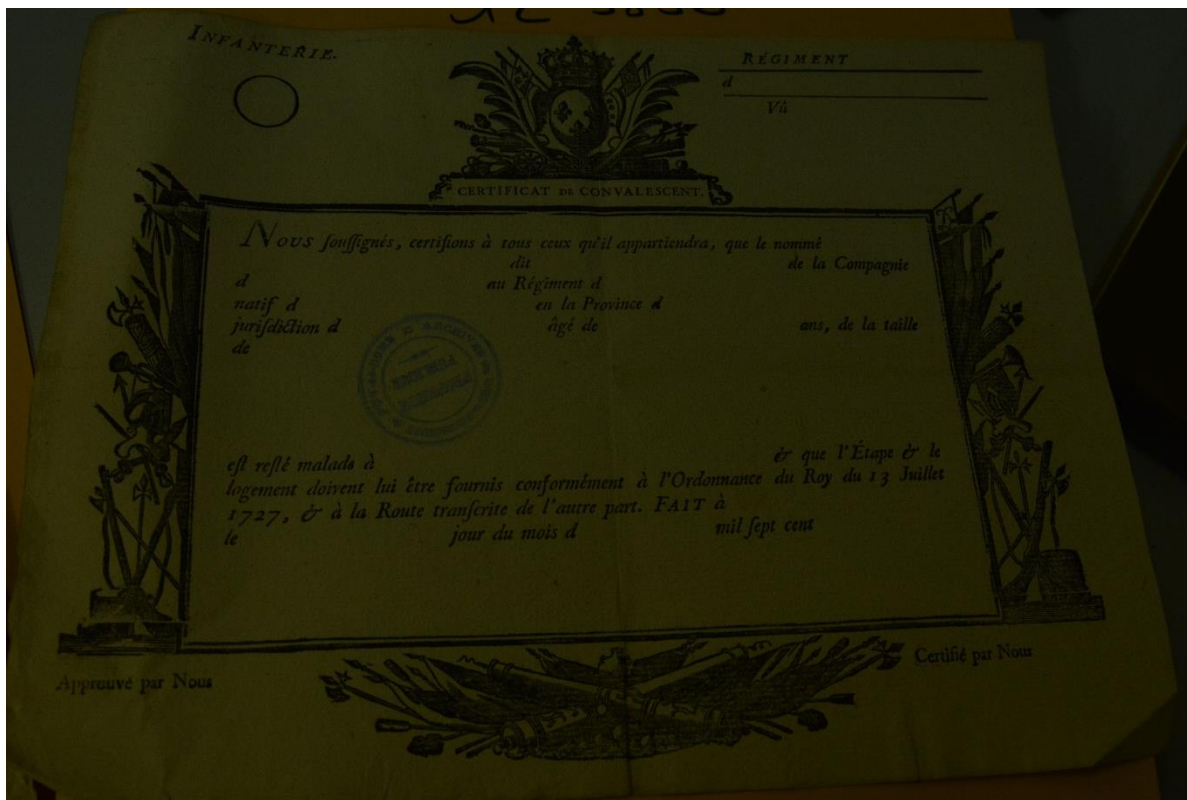 INFANTERIE.
RÉGIMENT
d
Vû
CERTIFICAT DE CONVALESCENT.
Nous souſſignés, certifions à tous ceux qu'il appartiendra, que le nommé
dit de la Compagnie
d au Régiment d
natif d en la Province d
juriſdiction d âgé de ans, de la taille
de
eſt reſté malade à & que l'Étape & le
logement doivent lui être fournis conformément à l'Ordonnance du Roy du 13 Juillet
1727, & à la Route tranſcrite de l'autre part. FAIT à
le jour du mois d mil ſept cent
Approuvé par Nous
Certifié par Nous